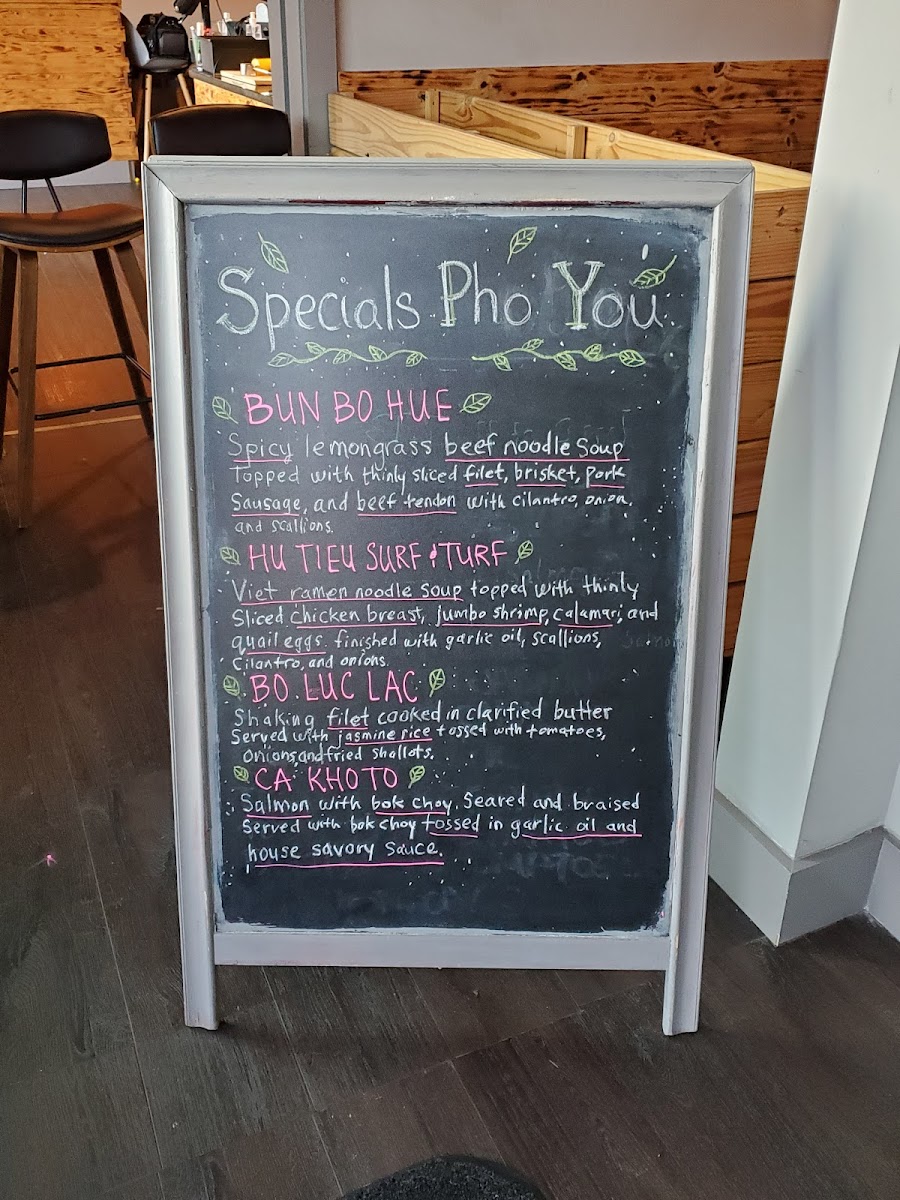 Specials Pho You
BUN BO HUE
Spicy lemongrass beef noodle soup
Topped with thinly sliced filet, brisket, pork
Sausage, and beef tendon with cilantro, onion,
and scallions.
HU TIEU SURF & TURF
Viet ramen noodle soup topped with thinly
Sliced chicken breast, jumbo shrimp, calamari, and
quail eggs. finished with garlic oil, scallions,
Cilantro, and onions.
BO LUC LAC
Shaking filet cooked in clarified butter
Served with jasmine rice tossed with tomatoes,
Onions, and fried shallots.
CA KHO TO
Salmon with bok choy. Seared and braised
Served with bok choy tossed in garlic oil and
house savory sauce.